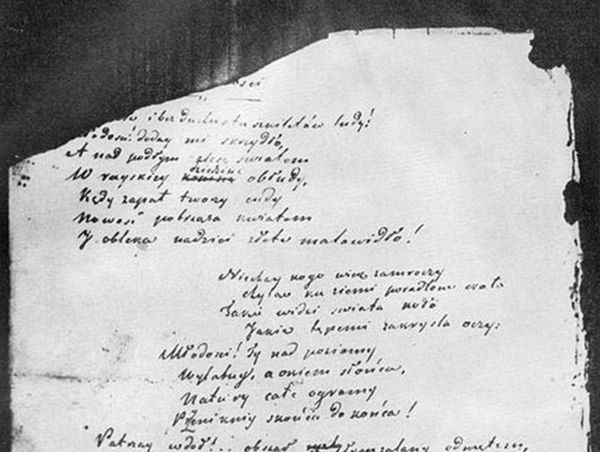 ści
i bez ducha to szkieletów ludy!
łodości! dodaj mi skrzydła,
A nad podłym światem
dziedzinę
W rayskiey obłudy,
Kędy zapał tworzy cudy
Nowość potrząsa kwiatem
I obleka nadziei złote malowidło!
Niechay kogo wiek zamroczy
Chyląc ku ziemi poradlone czoło
Takie widzi świata koło
Jakie tępemi zakryśla oczy:
Młodości! Ty nad poziomy
Wylatuy, a okiem słońca,
Natury całe ogromy
Przenikniy z końca do końca!
Patrzay w dół!.. obszar zalany odmętem,